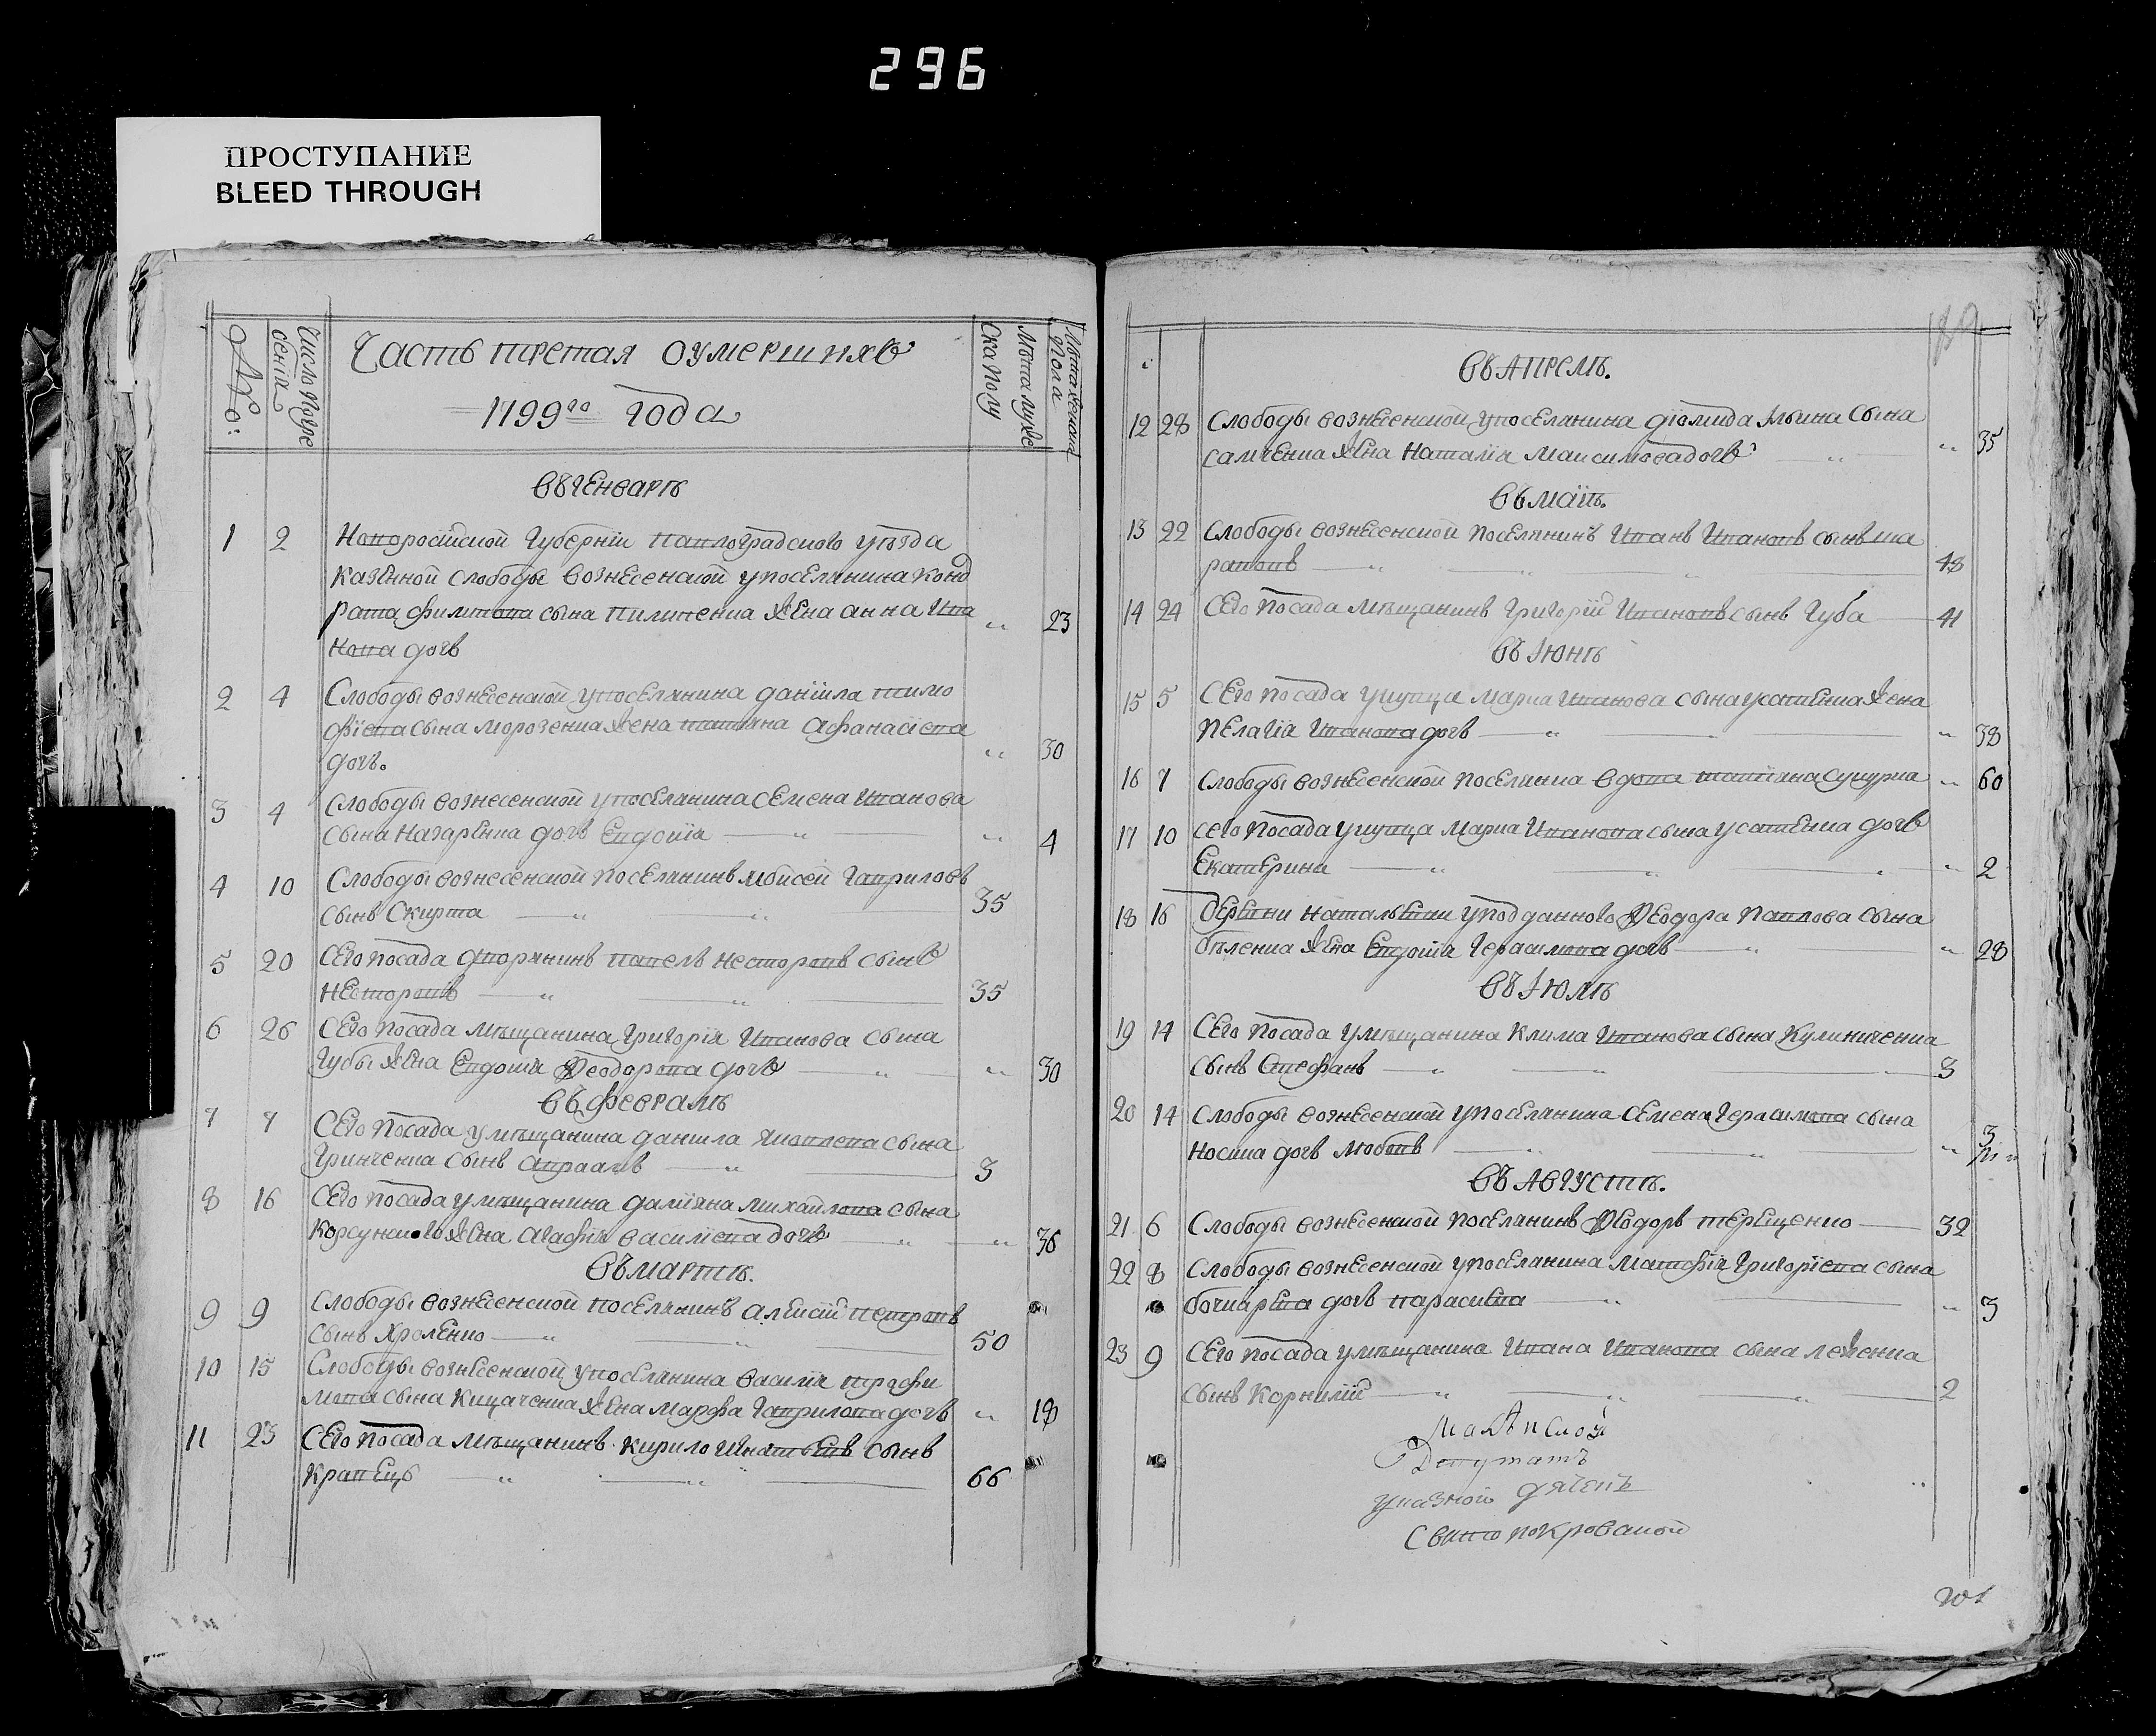 296
ПРОСТУПАНИЕ
BLEED THROUGH
№:
Число Погре
бенія
Часть третая оумершихъ
1799го года
Лѣта муже
ска полу
Лѣта женска
пола
въ Генварѣ
1 2 Новоросійской Губерніи Павлоградского уѣзда
казенной слободы вознесенской упоселянина Конд
рата филипова сына пилипенка жена анна Ива
нова дочь " 23
2 4 Слободы вознесенской упоселянина даніила тимо
фіева сына морозенка жена татіяна Афанасіева
дочь. " 30
3 4 Слободы вознесенской упоселянина Семена Иванова
сына Назаренка дочь Евдокія " 4
4 10 Слободы вознесенской поселянинъ мойсей Гавриловъ
сынъ Скирта 35
5 20 Сего посада дворянинъ павелъ несторовъ сынъ
несторовъ 35
6 26 Сего посада мѣщанина Григорія Иванова сына
Губы жена Евдокія Ѳеодорова дочь " 30
въ февралѣ
7 7 Сего посада у мѣщанина даниила яковлева сына
Гринченка сынъ авраамъ 3
8 16 Сего посада у мѣщанина даміяна михайлова сына
Корсунского жена агафія василіева дочь " 36
въ мартѣ.
9 9 Слободы вознесенской поселянинъ алексій петровъ
сынъ Хроленко 50
10 15 Слободы вознесенской упоселянина василія трофи
мова сына Кицаченка жена марфа Гаврилова дочь " 18
11 23 Сего посада мѣщанинъ кирило игнатьевъ сынъ
кравецъ 66
189
въ Апрелѣ.
12 28 Слободы вознесенской упоселянина діомида Ильина сына
самченка жена наталія максимова дочь " 35
въ маіѣ.
13 22 Слободы вознесенской поселянинъ Иванъ Ивановъ сынъ ша
раповъ 48
14 24 Сего посада мѣщанинъ григорій Ивановъ сынъ Губа 41
въ Іюнѣ
15 5 Сего посада у купца марка Иванова сына усатенка жена
пелагія Иванова дочь " 38
16 7 Слободы вознесенской поселянка вдова татіяна сукурка " 60
17 10 Сего посада у купца марка Иванова сына усатенка дочь
Екатерина " 2
18 16 Деревни натальевки у подданного Ѳеодора павлова сына
бѣленка жена Евдокія Герасимова дочь " 28
въ Іюлѣ
19 14 Сего посада у мѣщанина клима Иванова сына Кулиниченка
сынъ Стефанъ 3
20 14 Слободы вознесенской упоселянина Семена Герасимова сына
носика дочь любовь " 3
въ Августѣ.
21 6 Слободы вознесенской поселянинъ Ѳеодоръ терещенко 32
22 8 Слободы вознесенской упоселянина матфія григоріева сына
бочкарева дочь параскева " 3
23 9 Сего посада у мѣщанина Ивана Иванова сына леженка
сынъ корнилій 2
Депутатъ
указной дячекъ
Свято покровской
201